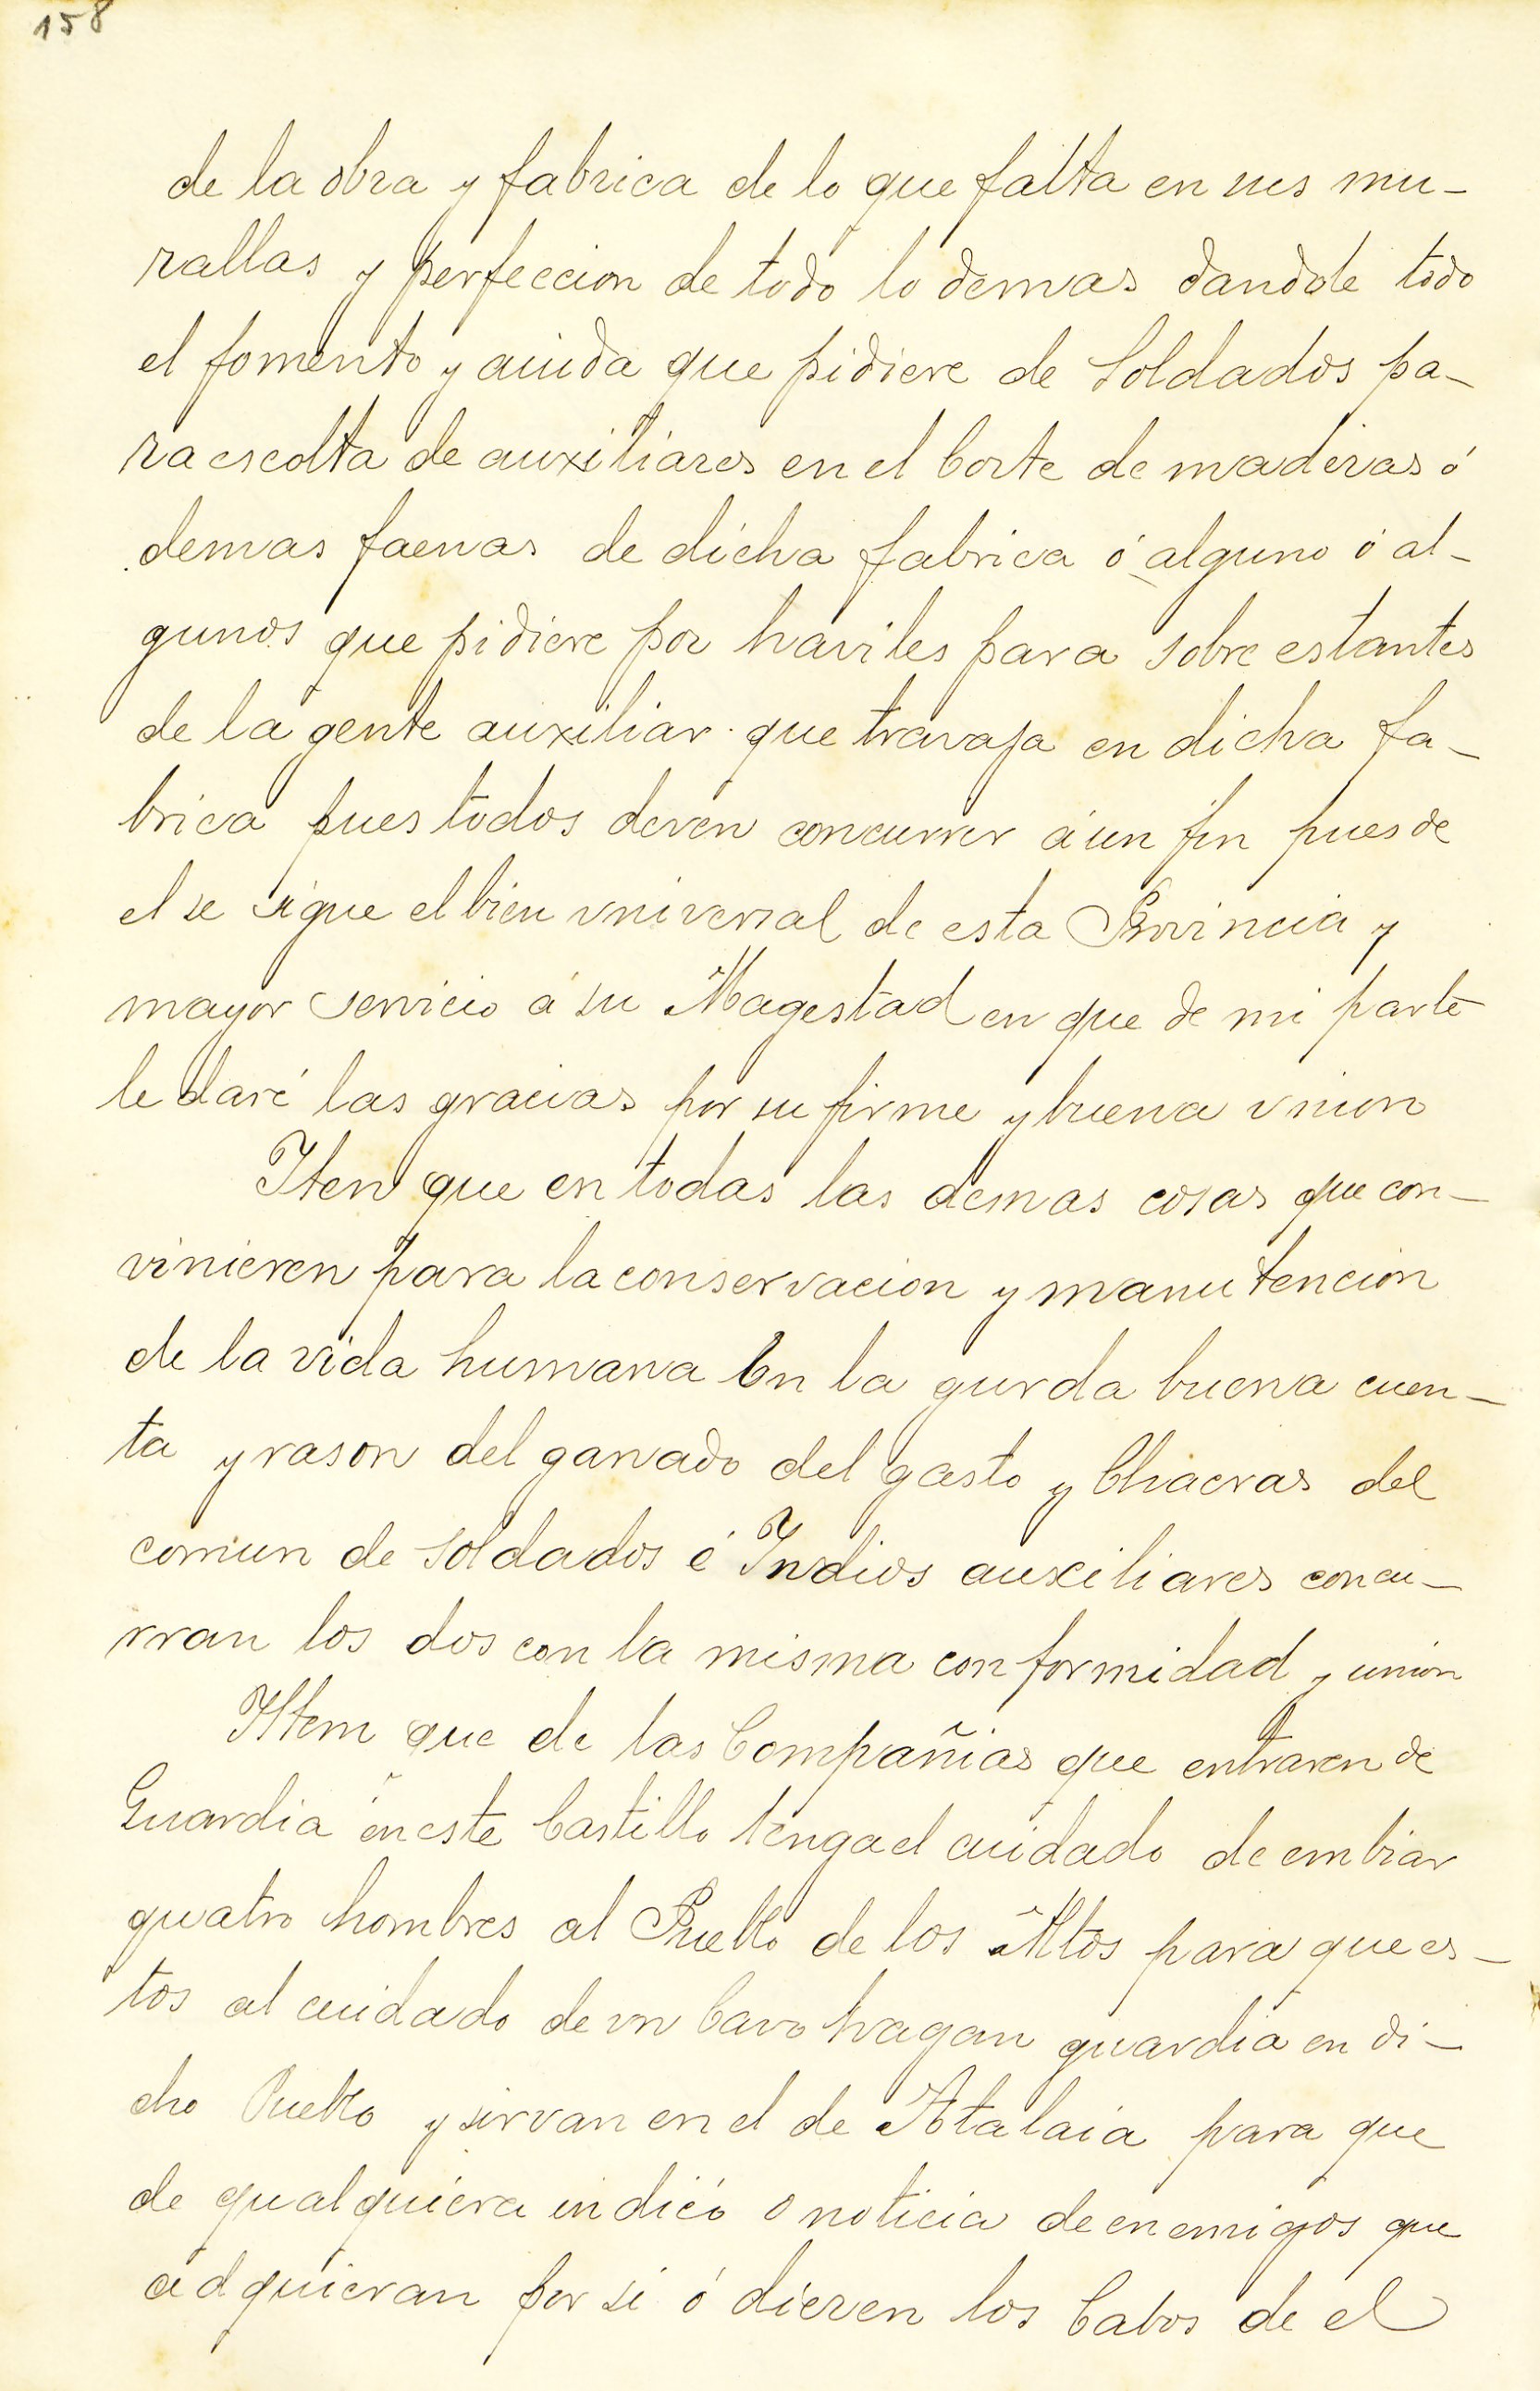 158
de la obra y fabrica de lo que falta en sus mu-
rallas y perfeccion de todo lo demas dandole todo
el fomento y aiuda que pidiere de Soldados pa-
ra escolta de auxiliares en el Corte de maderas ó
demas faenas de dicha fabrica ó alguno ó al-
gunos que pidiere por haviles para sobre estantes
de la gente auxiliar que travaja en dicha fa-
brica pues todos deven concurrir á un fin pues de
el se sigue el bien vniversal de esta Provincia y
mayor servicio á su Magestad en que de mi parte
le daré las gracias por su firme y buena vnion
Iten que en todas las demas cosas que con-
vinieren para la conservacion y manutencion
de la vida humana En la gurda buena cuen-
ta y rason del ganado del gasto y Chacras del
comun de soldados é Indios auxiliares concu-
rran los dos con la misma conformidad y union
Item que de las Compañias que entraren de
Guardia en este Castillo tenga el cuidado de embiar
quatro hombres al Pueblo de los Altos para que es-
tos al cuidado de vn Cavo hagan guardia en di-
cho Pueblo y sirvan en el de Atalaia para que
de qualquiera indicó o noticia de enemigos que
adquieran por si ó dieren los Cabos de el